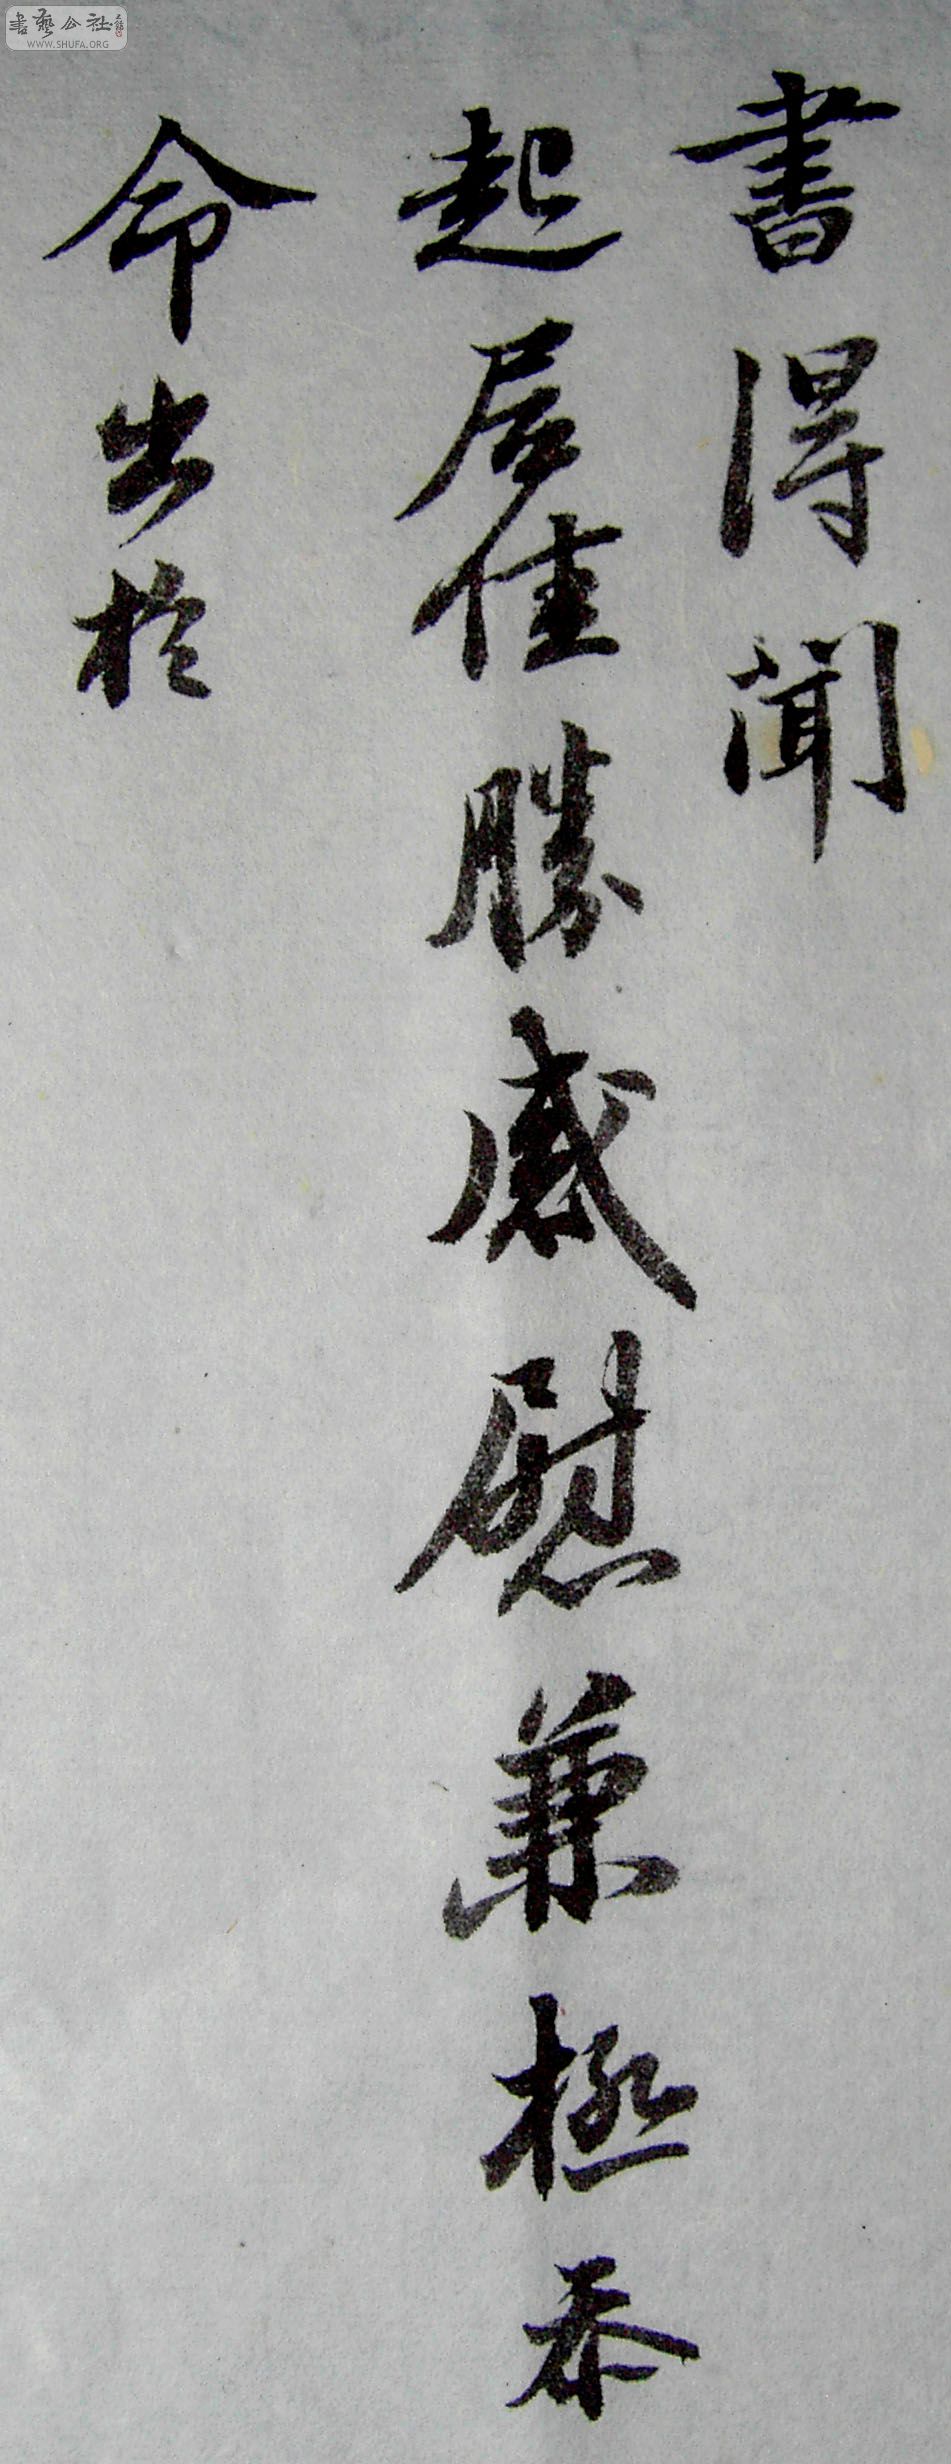 書得聞
起居佳勝感慰兼極忝
命出於
書藝公社
WWW.SHUFA.ORG